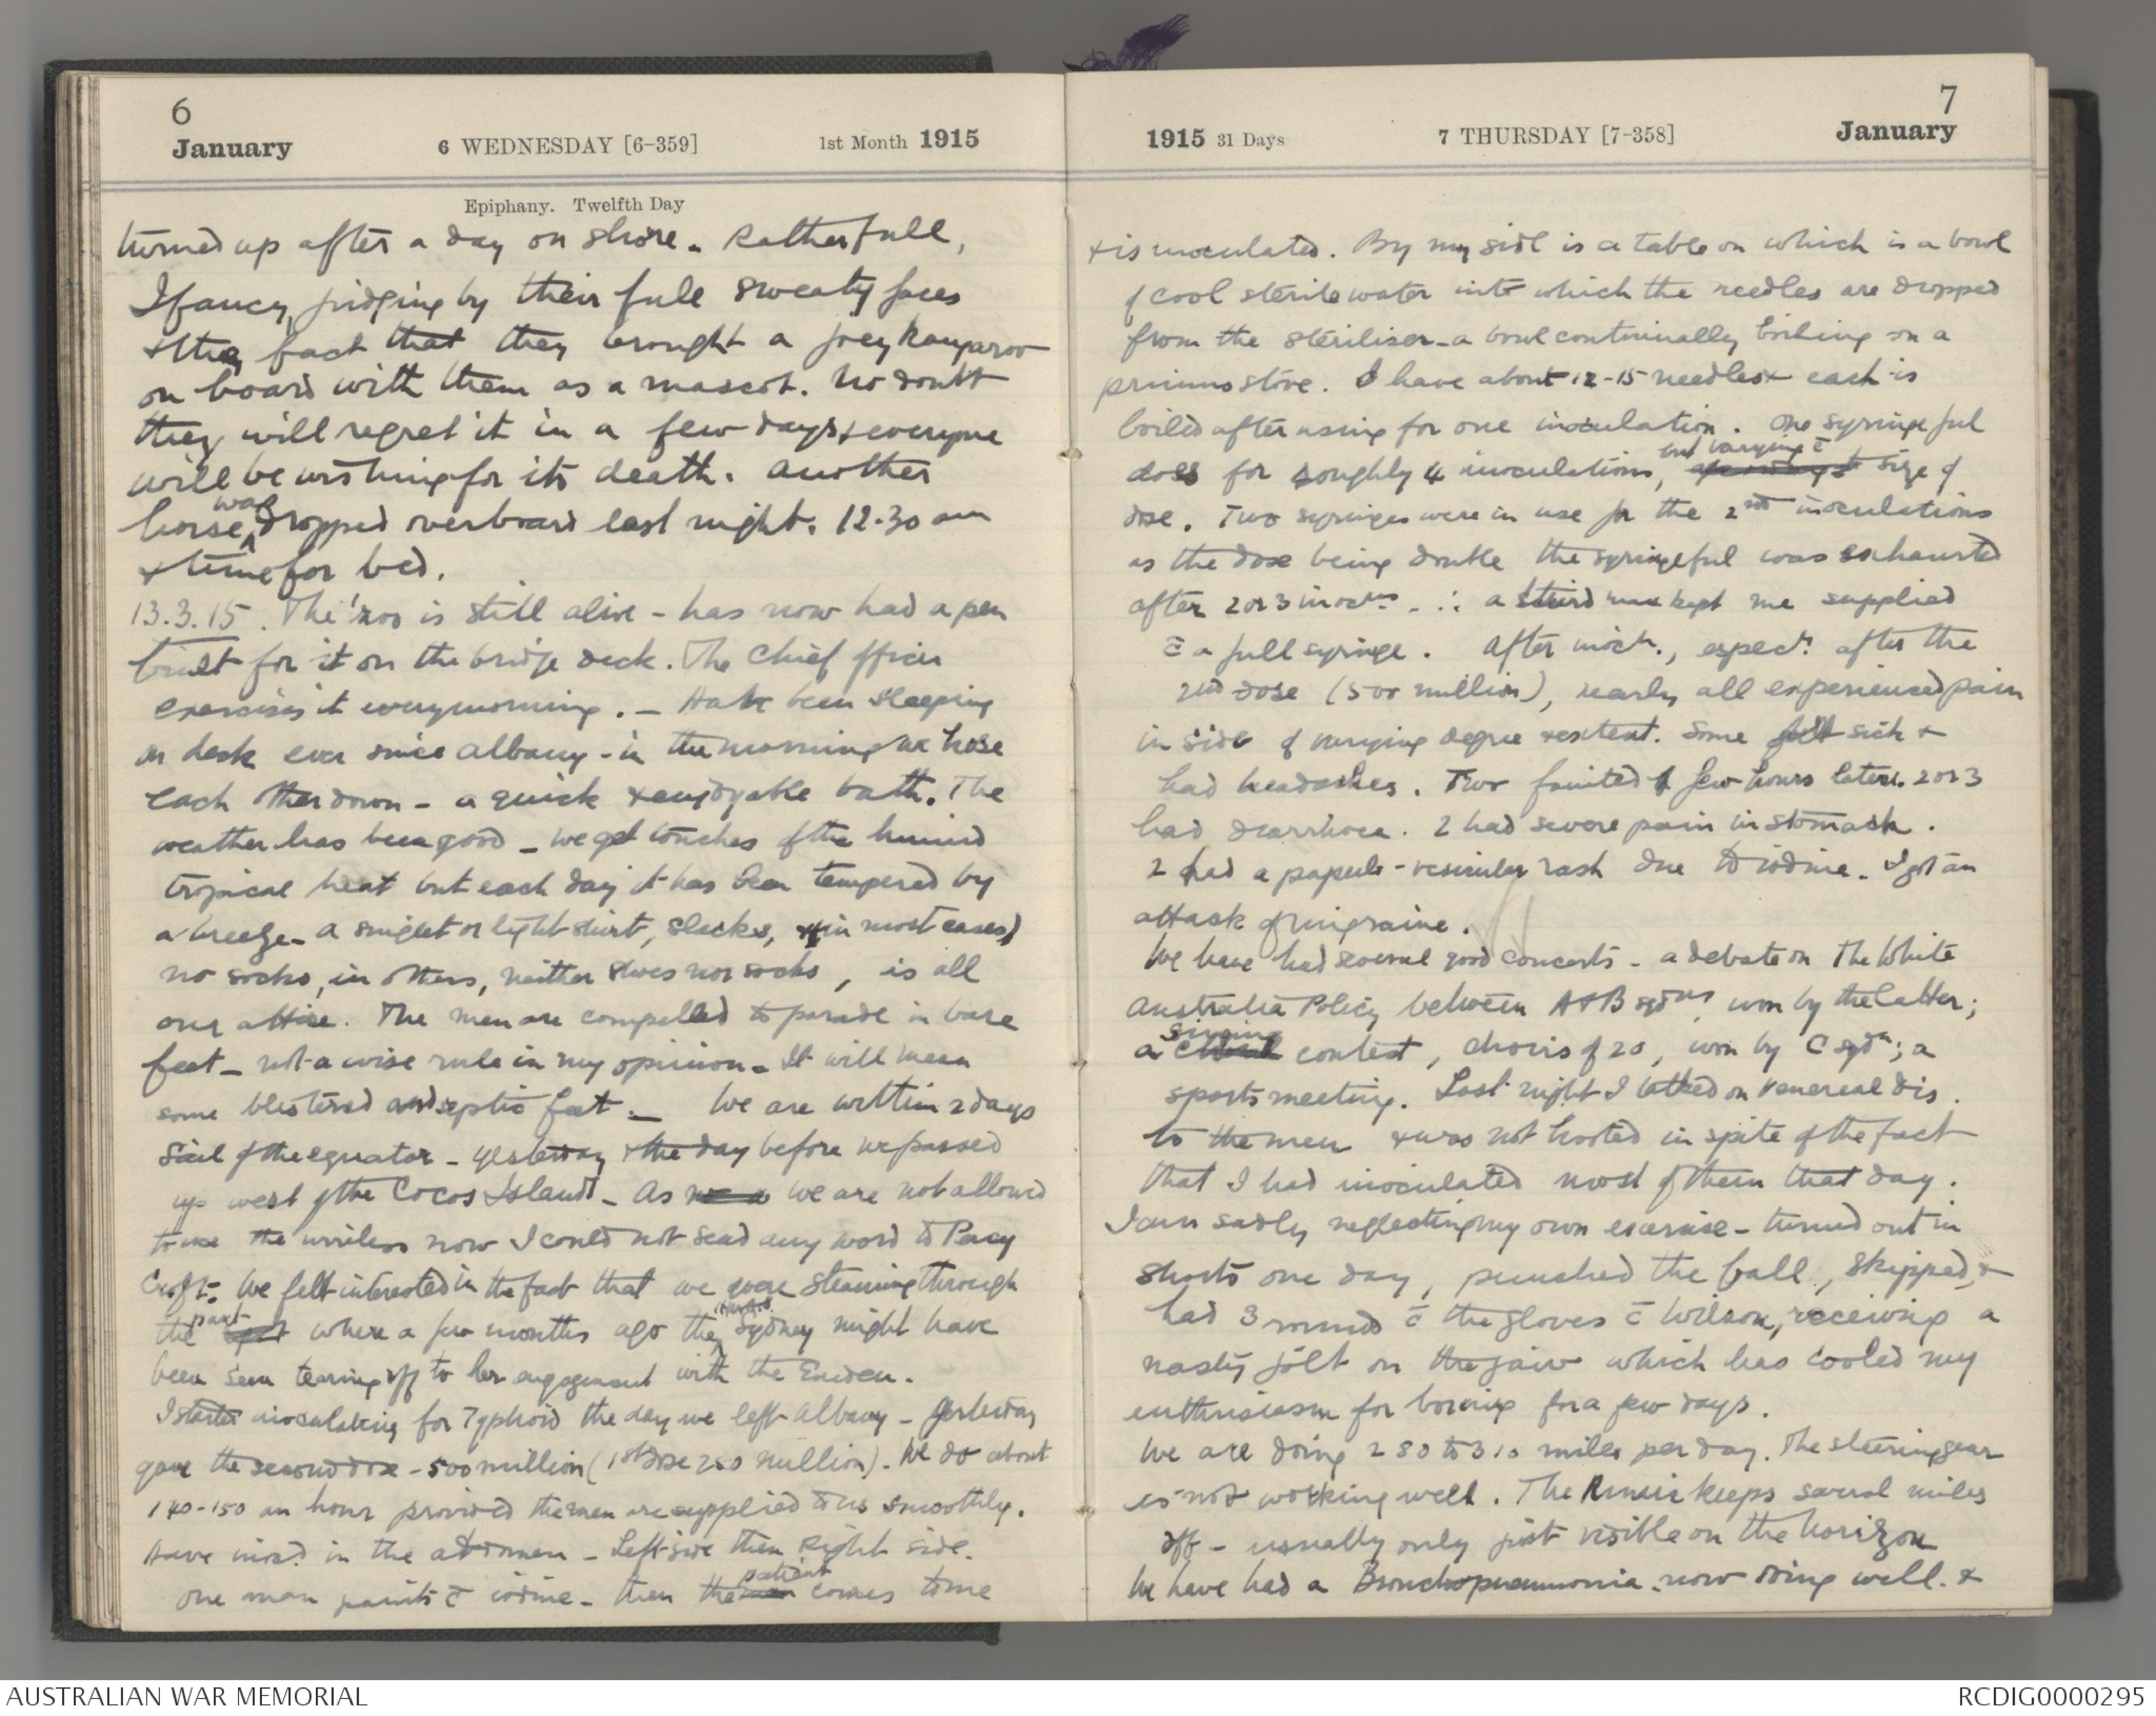 6
January
6 WEDNESDAY [6-359]
1st Month 1915
Epiphany. Twelfth Day
turned up after a day on shore. Rather full,
I fancy, judging by their full sweaty faces
& the fact that they brought a joey kangaroo
on board with them as a mascot. No doubt
they will regret it in a few days & everyone
will be wishing for its death. Another
horse was dropped overboard last night. 12.30 am
& time for bed.
13.3.15. The 'roo is still alive - has now had a pen
built for it on the bridge deck. The Chief Officer
exercises it every morning. - Have been sleeping
on deck ever since Albany - in the morning we hose
each other down - a quick & enjoyable bath. The
weather has been good - we get touches of the humid
tropical heat but each day it has been tempered by
a breeze - a singlet or light shirt, slacks, & (in most cases)
no socks, in others, neither shoes nor socks, is all
our attire. The men are compelled to parade in bare
feet - not a wise rule in my opinion - It will mean
some blistered and septic feet. - We are within 2 days
sail of the equator - yesterday & the day before we passed
up west of the Cocos Islands - As we are not allowed
to use the wireless now I could not send any word to Percy
Croft. We felt interested in the fact that we were steaming through
the part where a few months ago the H.M.A.S. Sydney might have
been seen tearing off to her engagement with the Emden.
I started inoculating for Typhoid the day we left Albany - Yesterday
gave the second dose - 500 million (1st dose 250 million). We do about
140-150 an hour provided the men are supplied to us smoothly.
Have inocd in the abdomen - Left side then Right side.
One man paints c̄ iodine - then the patient comes to me
7
January
1915 31 Days
7 THURSDAY [7-358]
& is inoculated. By my side is a table on which is a bowl
of cool sterile water into which the needles are dropped
from the steriliser - a bowl continually boiling on a
primus stove. I have about 12-15 needles & each is
boiled after using for one inoculation. One syringe full
does for roughly 4 inoculations, but varying c̄ size of
dose. Two syringes were in use for the 2nd inoculations
as the dose being double the syringeful was exhausted
after 2 or 3 inocns - ∴ a third man kept me supplied
c̄ a full syringe. After inocn., especy. after the
2nd dose (500 million), nearly all experienced pain
in side of varying degree & extent. Some felt sick &
had headaches. Two fainted a few hours later. 2 or 3
had diarrhoea. 2 had severe pain in stomach.
2 had a papulo-vesicular rash due to iodine. I got an
attack of migraine.
We have had several good concerts - a debate on The White
Australia Policy between A & B sqdns, won by the latter;
a singing contest, choris of 20, won by C sqdn; a
sports meeting. Last night I talked on venereal dis.
to the men & was not hooted in spite of the fact
that I had inoculated most of them that day.
I am sadly neglecting my own exercise - turned out in
shorts one day, punched the ball, skipped, &
had 3 rounds c̄ the gloves c̄ Wilson, receiving a
nasty jolt on the jaw which has cooled my
enthusiasm for boxing for a few days.
We are doing 280 to 310 miles per day. The steering gear
is not working well. The Runic keeps several miles
off - usually only just visible on the horizon
We have had a Bronchopneumonia - now doing well. &
AUSTRALIAN WAR MEMORIAL
RCDIG0000295